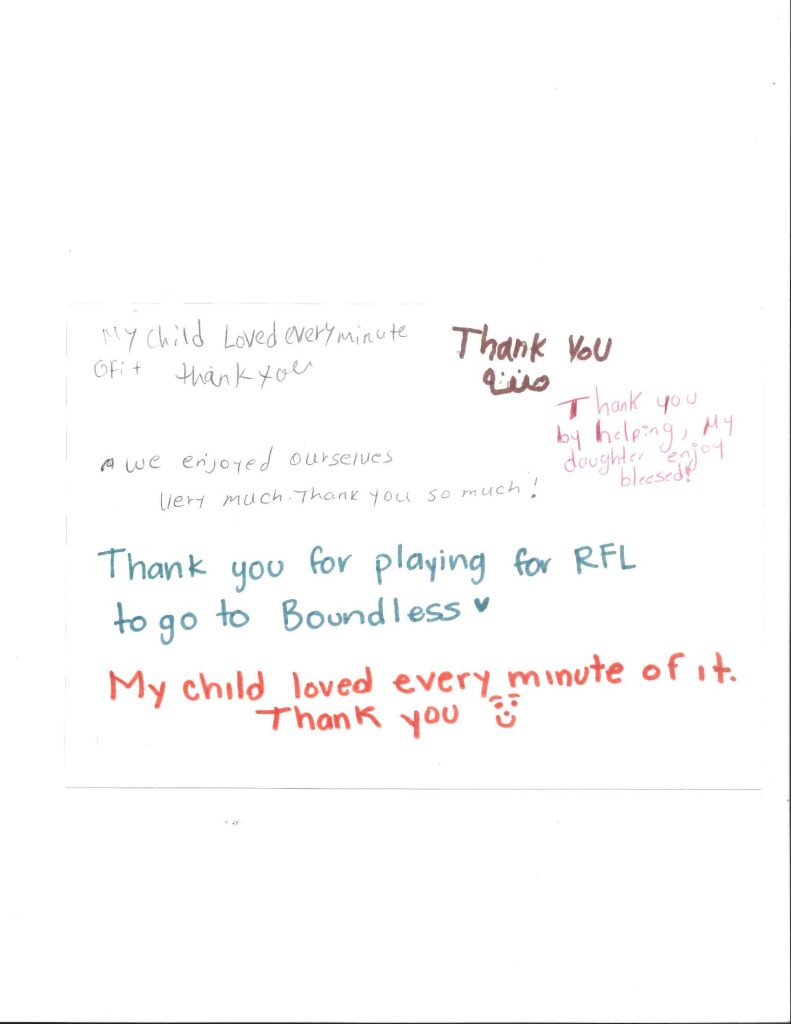 My child Loved every minute
OFit thank you
Thank You
Thank you
by helping, My
daughter enjoy
bleesed!
we enjoyed ourselves
Very much. Thank you so much!
Thank you for playing for RFL
to go to Boundless
My child loved every minute of it.
Thank you